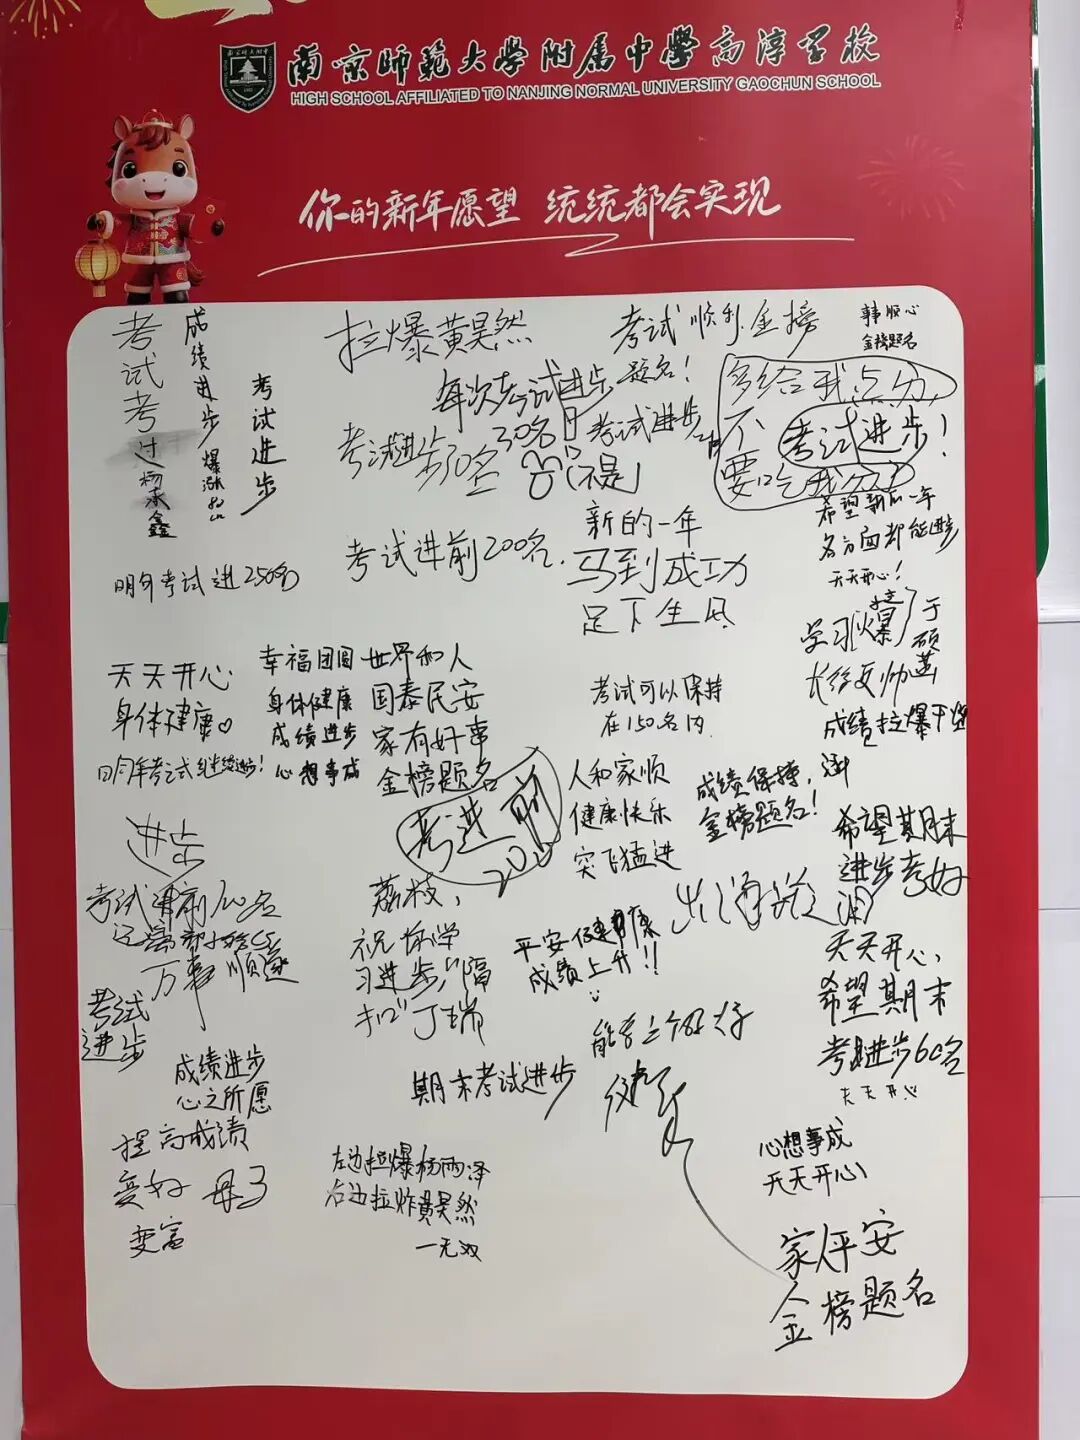 南京师范大学附属中学高淳学校
HIGH SCHOOL AFFILIATED TO NANJING NORMAL UNIVERSITY GAOCHUN SCHOOL
你的新年愿望 统统都会实现
考试考过
杨承鑫
成绩进步
考试进步
拉爆黄昊然
每次考试进步
30名
考试进步50名
考试顺利金榜
题名!
考试进步
韩顺心
金榜题名
多给我点分,
不
要吃我分
考试进步!
希望新的一年
各方面都能进步
天天开心!
明年考试进250名
考试进前200名
新的一年
马到成功
足下生风
学习火爆
于硕
成绩拉爆于
天天开心
身体健康
明年考试继续进步!
幸福团圆
身体健康
成绩进步
心想事成
世界和人
国泰民安
家有好事
金榜题名
考试可以保持
在150名内
人和家顺
健康快乐
突飞猛进
成绩保持,
金榜题名!
考进前
200
希望期末
进步考好
进步
考试进前100名
万事顺遂
考试
进步
荔枝,
祝你学
习进步,"隔
扣"丁瑞
平安健康
成绩上升!!
天天开心,
希望期末
考进步60名
天天开心
成绩进步
心之所愿
期末考试进步
提高成绩
变好
变富
左边拉爆杨雨泽
右边拉炸黄昊然
一无双
心想事成
天天开心
家人平安
金榜题名